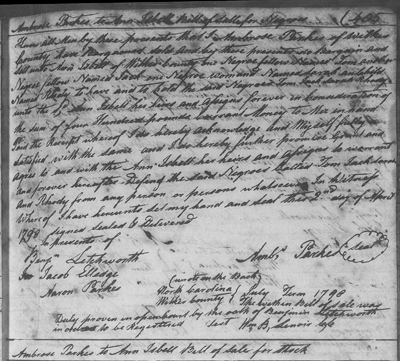 Ambrose Parkes to Ann Isbell Bill of sale for Negroes
Know all Men by these presents that I Ambrose Parkes of Wilkes
County have Bargained sold and by these presents do Bargain and
sell unto Ann Isbell of Wilkes County one Negroe fellow Named Tom another
Negroe fellow Named Jack one Negroe woman Named Sarah and child
Named Rhody to have and to hold the said Negroes Tom Jack Sarah and Rhody
unto the sd Ann Isbell her heirs and assigns forever in Consideration of
the sum of four Hundred pounds Currant Money to Me in hand
Pd the Receipt whereof I do hereby acknowledge and Myself fully
satisfied with the same and I do hereby further promise Covenant
agree to and with the Ann Isbell her heirs and assigns to warrant
and forever hereafter Defend the said Negroes Called Tom Jack Sarah
and Rhody from any person or persons whatsoever In Witness
Whereof I have hereunto set my hand and seal this 2nd day of April
1798 signed sealed & Delivered
In presents of
Benjn Letchworth Ambs Parkes seal
Jacob Elledge
Aaron Parkes (wrote on the Back)
North Carolina July Term 1798
Wilkes County The written Bill of sale was
Duly proven in open court by the oath of Benjamin Letchworth
ordered to be Registered test Wm B. Lenoir
Ambrose Parkes to Ann Isbell Bill of sale for stock